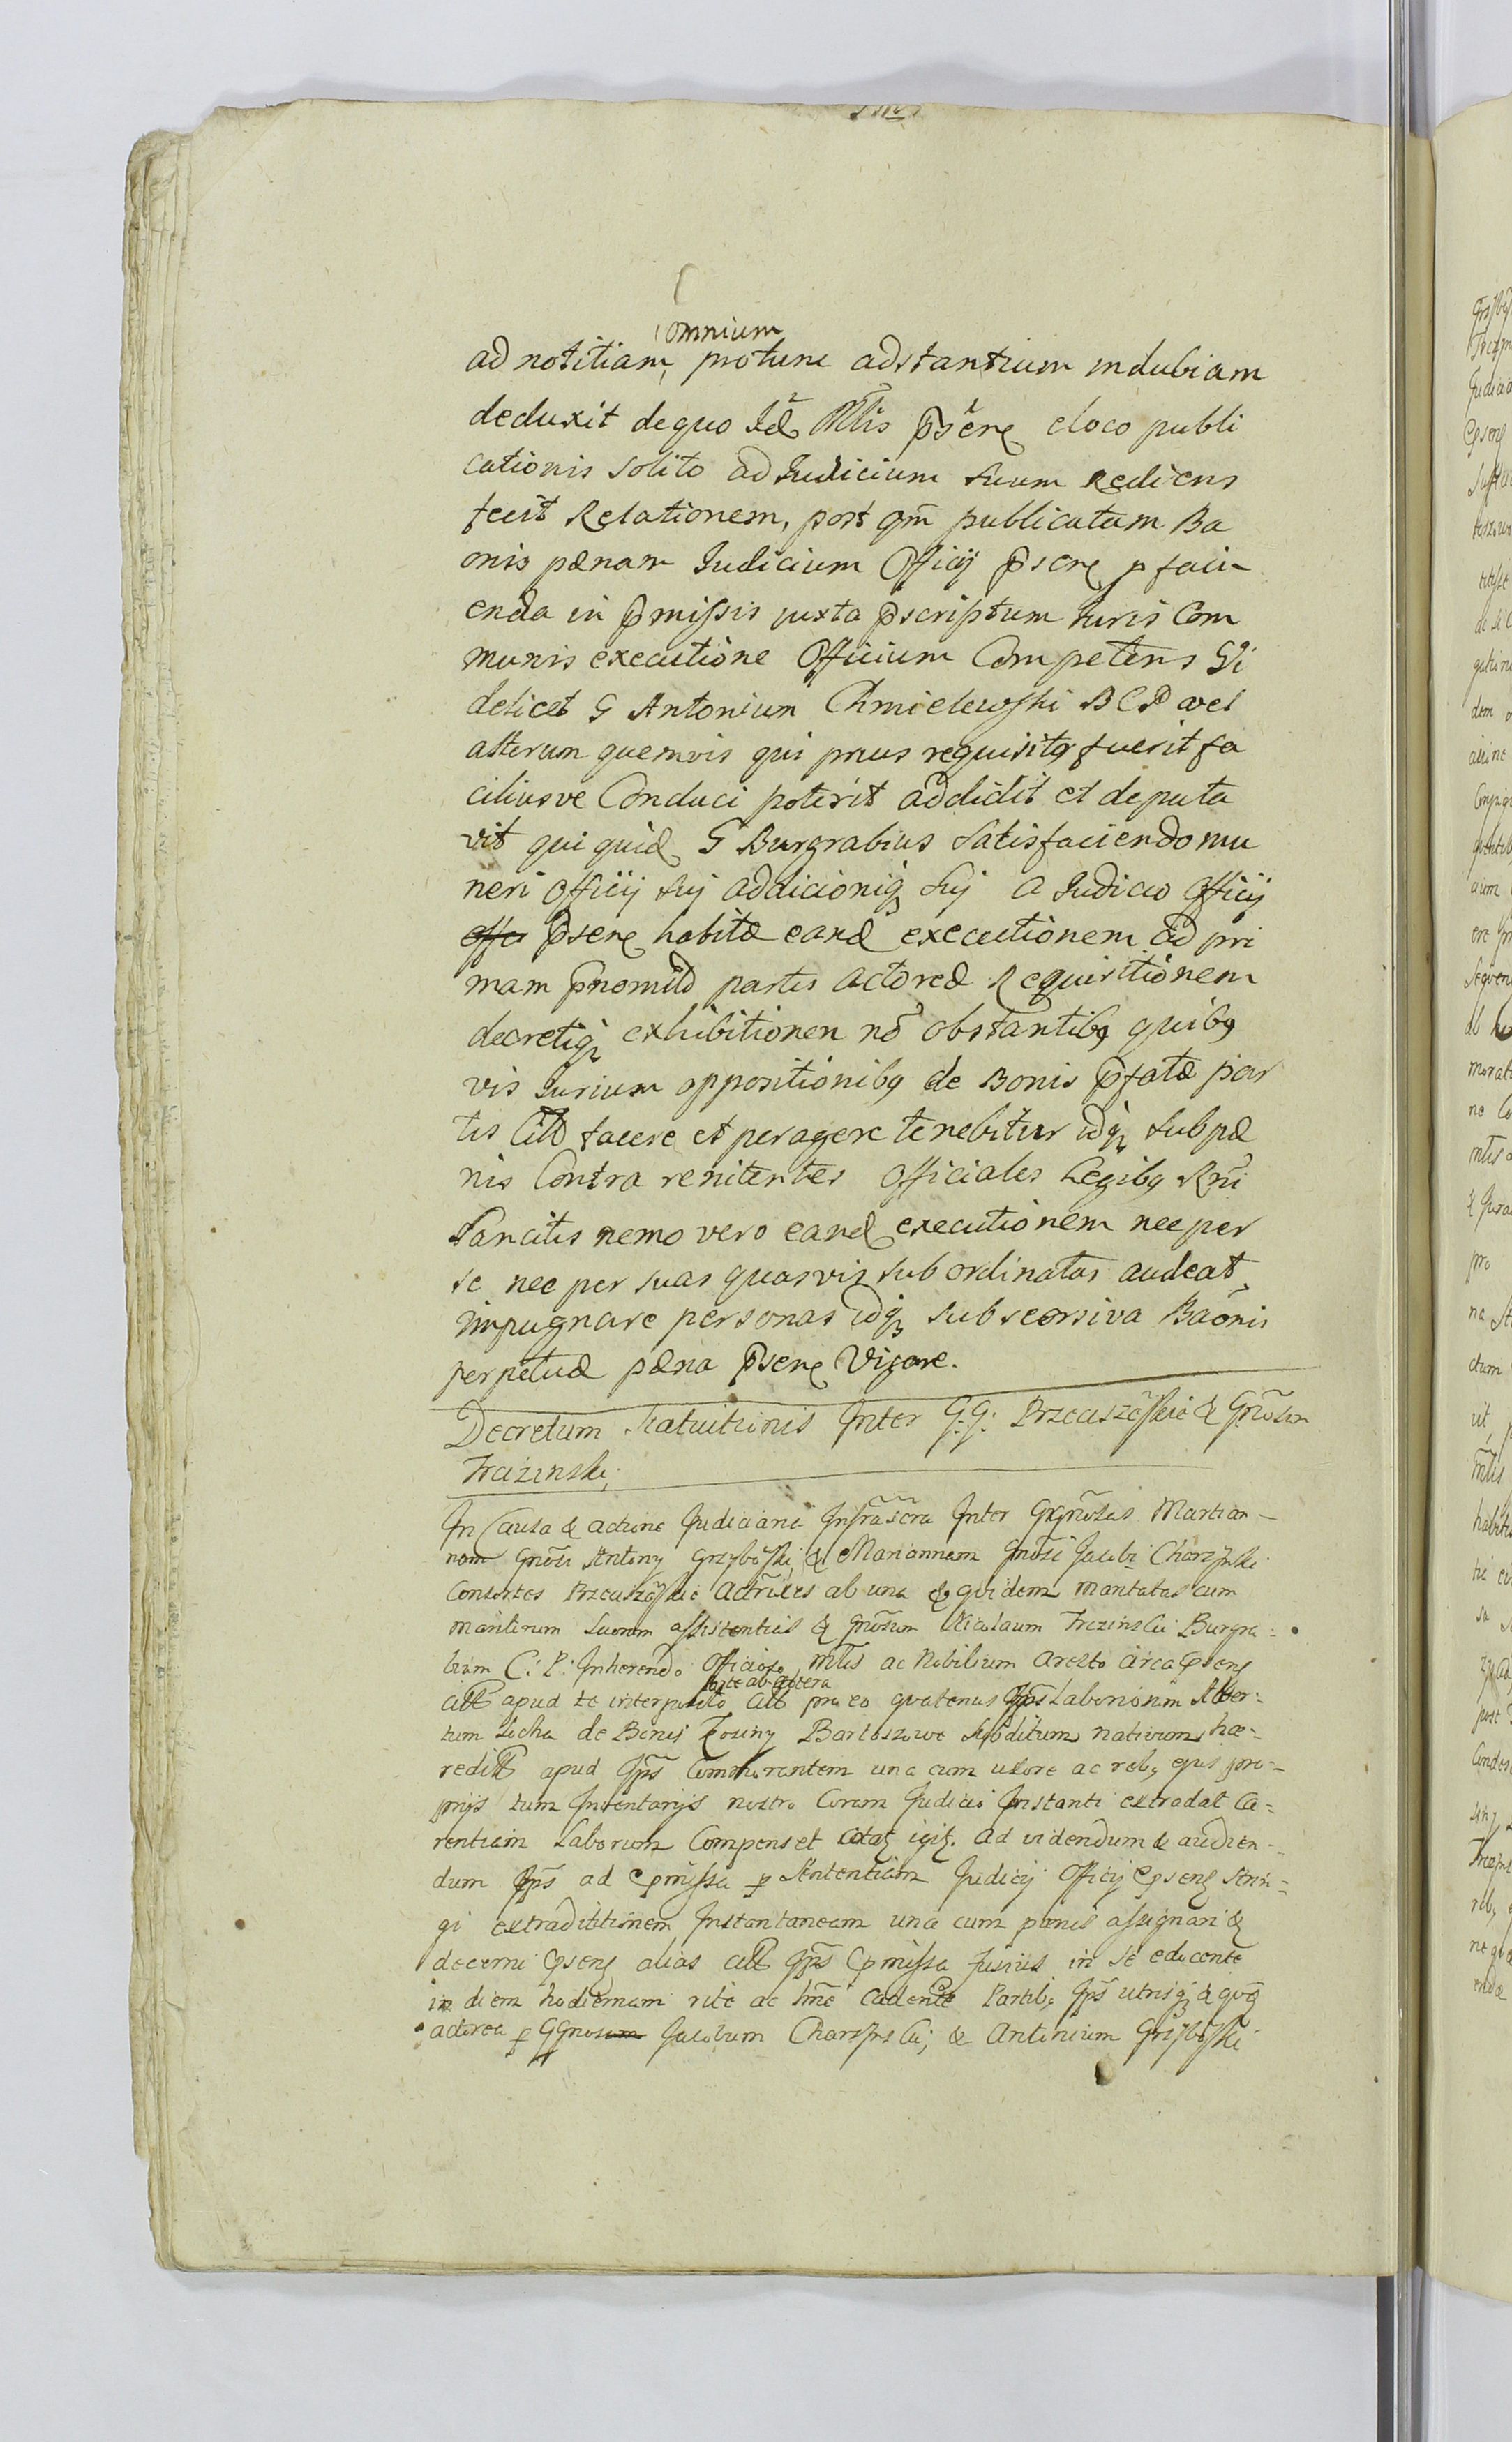 omnium
ad notitiam, protunc adstantium indubiam
deduxit de quo Id Mlis pserę eloco publi
cationis solito ad Iudicium suum Rediens
fecit Relationem, post qm̄ publicatam Ba
onis pænam Iudicium Officij pserę p facii
enda in pmissis iuxta pscriptum Iuris Com
munis executione Officium Competens Vi
delicet G Antonium Chmielewski BCP vel
alterum quemvis qui prius requisitq fuerit fa
ciliusve Conduci poterit addidit et deputa
vit qui quid G Burgrabius satisfaciendo mu
neri Officij sui addicioniq sui a Iudicio Officij
offa pserę habitæ eand executionem ad pri
mam parti Actoreæ Requisitionem
decretiq exhibitionem nō obstantibq quibq
vis Iurium oppositionibq de Bonis pfatæ par
tis Citt facere et peragere tenebitur idq sub pæ
nis Contra renitentes Officiales Legibq Rni
Sancitis nemo vero eand executionem nec per
se nec per suas quasvis subordinatas audeat
impugnare personas idq sub Baōnis
perpetuæ pæna pserę Vigore.
Decretum Inter G.G. & Gnōsum
Trazinski;
In Causa & actione Judiciaria Infrāscra Inter GGnōsas Martian-
nam Gnōsi Antony & Mariannam Gnōsi Jacobi Charzynski
Consortes Actrices ab una & quidem maritatas cum
maritorum suorum assistentia & Gnōsum Nicolaum Trazinski Burgra=
bium C: P: Inherendo Officioso Mlis ac Nobilium aresto circa pserę
parte ab altera
citt apud te interposito Citt pro eo quatenus Ips Laboriosum Alber=
tum de Bonis Bartoszowe subditum nativum hæ-
redit apud Ips Commorantem una cum uxore ac rebq ejus pro-
prijs tum Inventarijs nostro Coram Judicio Instanti extradat Ca=
rentiam Laborum Compenset Citat igit. ad videndum & audien-
dum Ips ad pmissa p Sententiam Judicij Officij pserę strin=
gi extradititionem Instantaneam una cum pœnis assignari &
decerni pserę alias citt Ips pmissa fusius in se edocente
in diem hodiernam rite ac lmē Cadente Partibq Ips utrisq & quid
actorea p GGnosum Jacobum Charzynski; & Antonium